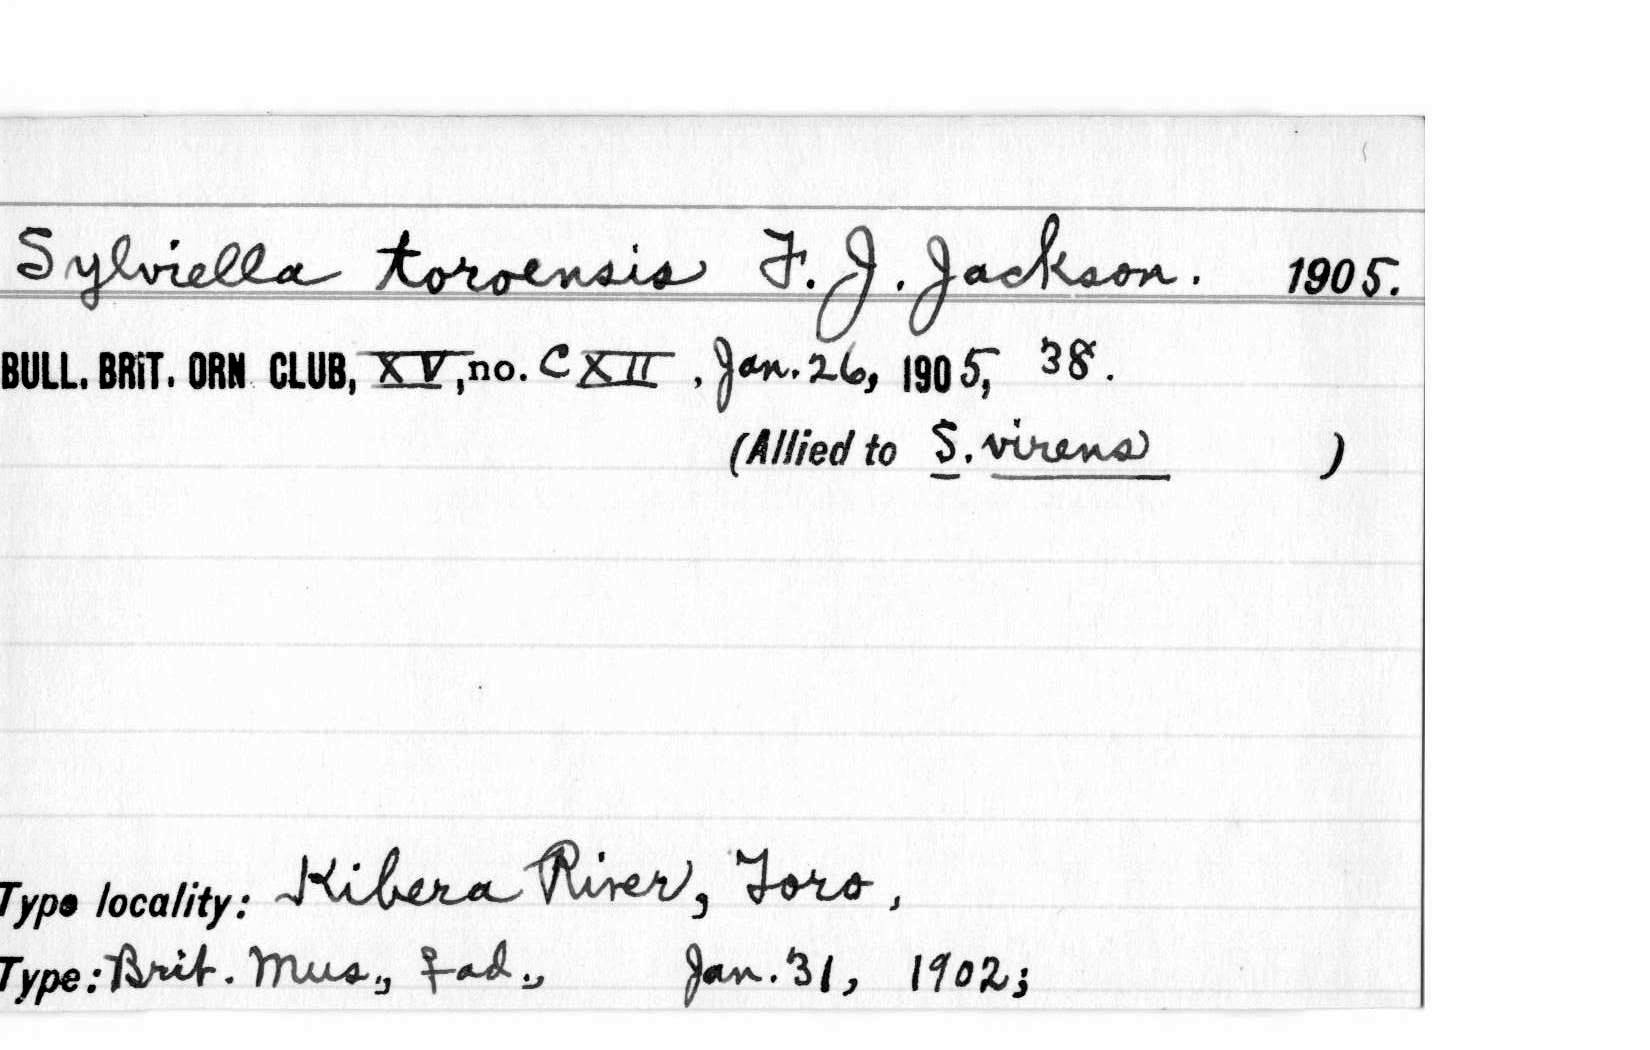 Sylviella toroensis F. J. Jackson. 1905.
BULL. BRIT. ORN CLUB, XV, no. CXII, Jan. 26, 1905, 38.
(Allied to S. virens )
Type locality: Kibera River, Toro,
Type: Brit. Mus., ♀ ad., Jan. 31, 1902;